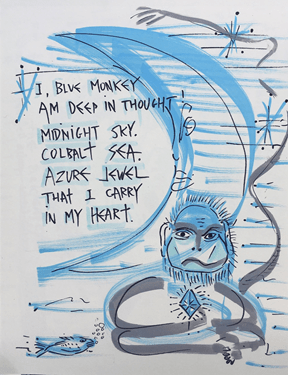 I, BLUE MONKEY
AM DEEP IN THOUGHT!
MIDNIGHT SKY.
COLBALT SEA.
AZURE JEWEL
THAT I CARRY
IN MY HEART.